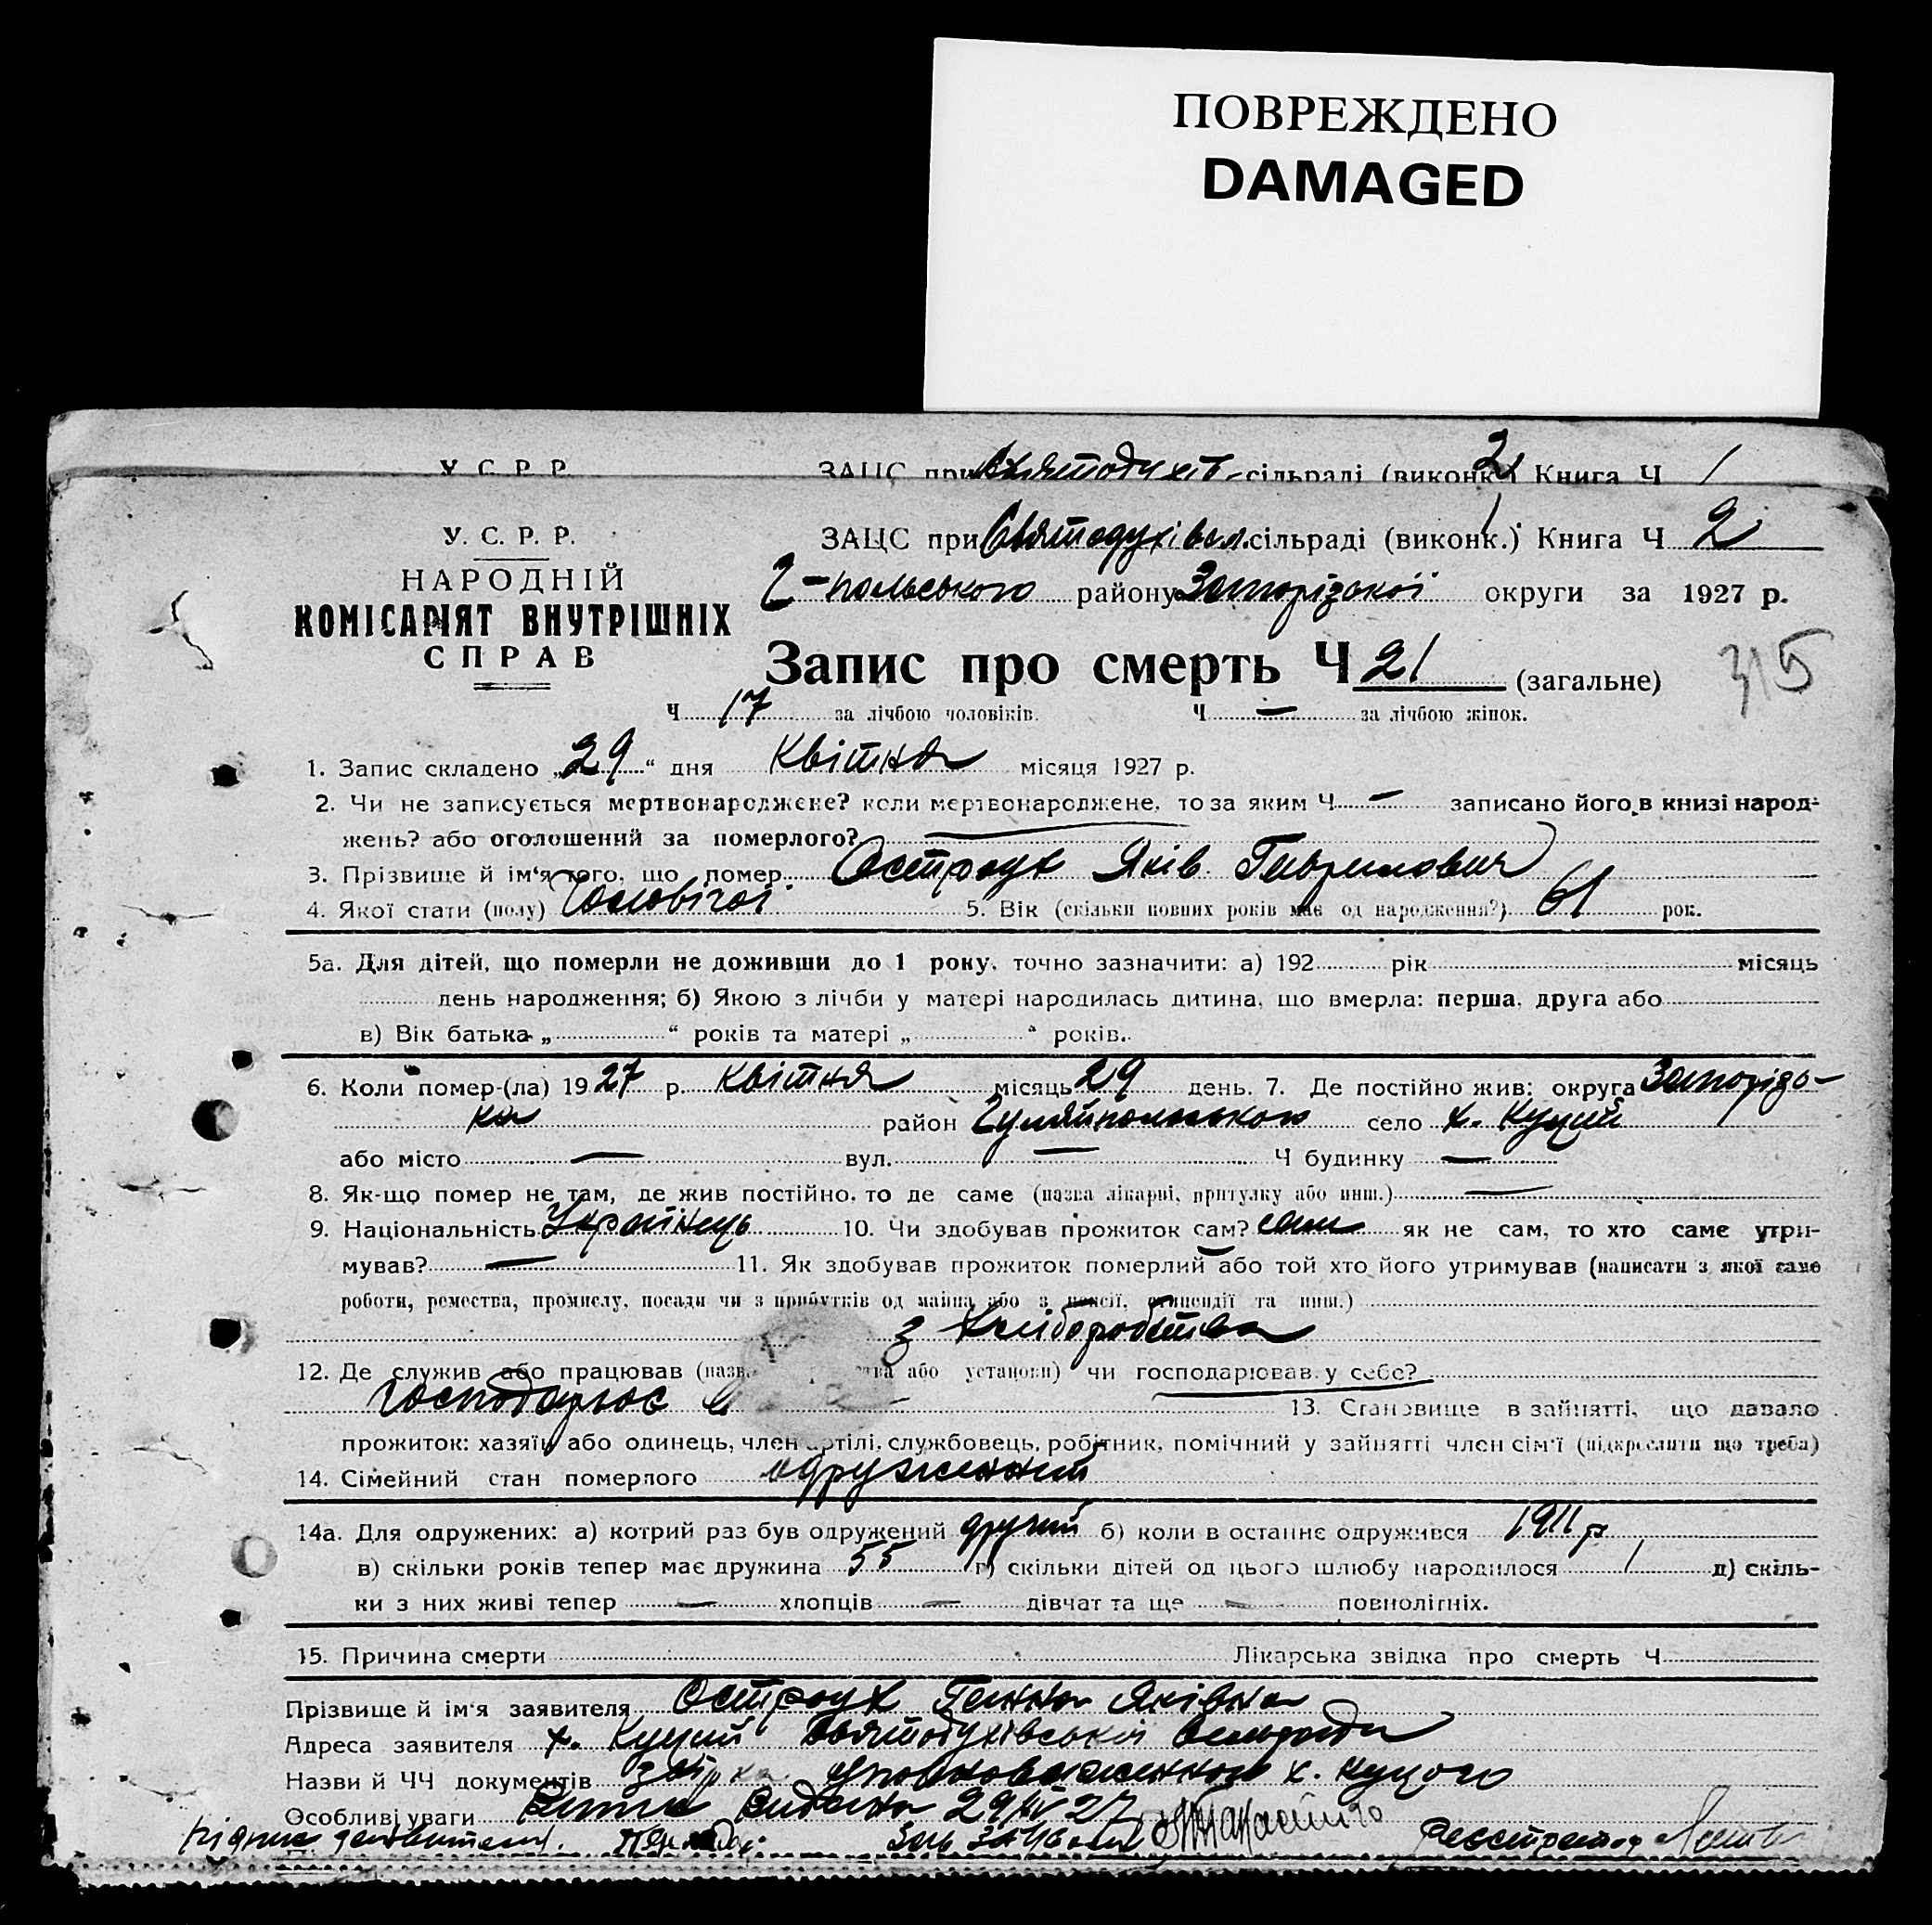 ПОВРЕЖДЕНО
DAMAGED
У. С. Р. Р.
ЗАЦС при сільраді (виконк.) Книга Ч 1
2
У. С. Р. Р.
НАРОДНІЙ
КОМІСАРІЯТ ВНУТРІШНІХ
СПРАВ
ЗАЦС при Святодухівск. сільраді (виконк.) Книга Ч 2
Г-польського району Запорізької округи за 1927 р.
Запис про смерть Ч 21 (загальне)
315
Ч 17 за лічбою чоловіків. Ч — за лічбою жінок.
1. Запис складено „29“ дня Квітня місяця 1927 р.
2. Чи не записується мертвонароджене? коли мертвонароджене, то за яким Ч — записано його в книзі народ-
жень? або оголошений за померлого?
3. Прізвище й ім'я того, що помер Остроух Яків Гаврилович
4. Якої стати (полу) Чоловічої 5. Вік (скільки повних років має од народження?) 61 рок.
5а. Для дітей, що померли не доживши до 1 року, точно зазначити: а) 192 рік місяць
день народження; б) Якою з лічби у матері народилась дитина, що вмерла: перша, друга або
в) Вік батька „ “ років та матері „ “ років.
6. Коли помер-(ла) 1927 р. Квітня місяць 29 день. 7. Де постійно жив: округа Запорізь-
ка район Гуляйпольського село х. Куций
або місто — вул. — Ч будинку —
8. Як-що помер не там, де жив постійно, то де саме (назва лікарні, притулку або инш.) —
9. Національність Українець 10. Чи здобував прожиток сам? сам як не сам, то хто саме утри-
мував? — 11. Як здобував прожиток померлий або той хто його утримував (написати з якої саме
роботи, ремества, промислу, посади чи з прибутків од майна або з пенсії, стипендії та инш.)
з хліборобства
12. Де служив або працював (назва або установи) чи господарював у себе?
господарює 13. Становище в зайнятті, що давало
прожиток: хазяїн або одинець, член артілі, службовець, робітник, помічний у зайнятті член сім'ї (підкреслити що треба)
14. Сімейний стан померлого одружений
14а. Для одружених: а) котрий раз був одружений другий б) коли в останнє одружився 1911 р
в) скільки років тепер має дружина 55 г) скільки дітей од цього шлюбу народилося 1 д) скіль-
ки з них живі тепер — хлопців — дівчат та ще — повнолітніх.
15. Причина смерти Лікарська звідка про смерть Ч
Прізвище й ім'я заявителя Остроух Ганна Яківна
Адреса заявителя х. Куций Святодухівської сельради
Назви й ЧЧ документів уповноваженного х. Куцого
Особливі уваги видана 29/IV 27
підпис Реєстратор